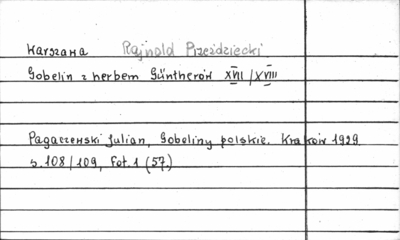 Warszawa Rajnold Przeździecki
Gobelin z herbem Güntherów XVII/XVIII
Pagaczewski Julian, Gobeliny polskie. Kraków 1929
s. 108/109, fot. 1 (57)